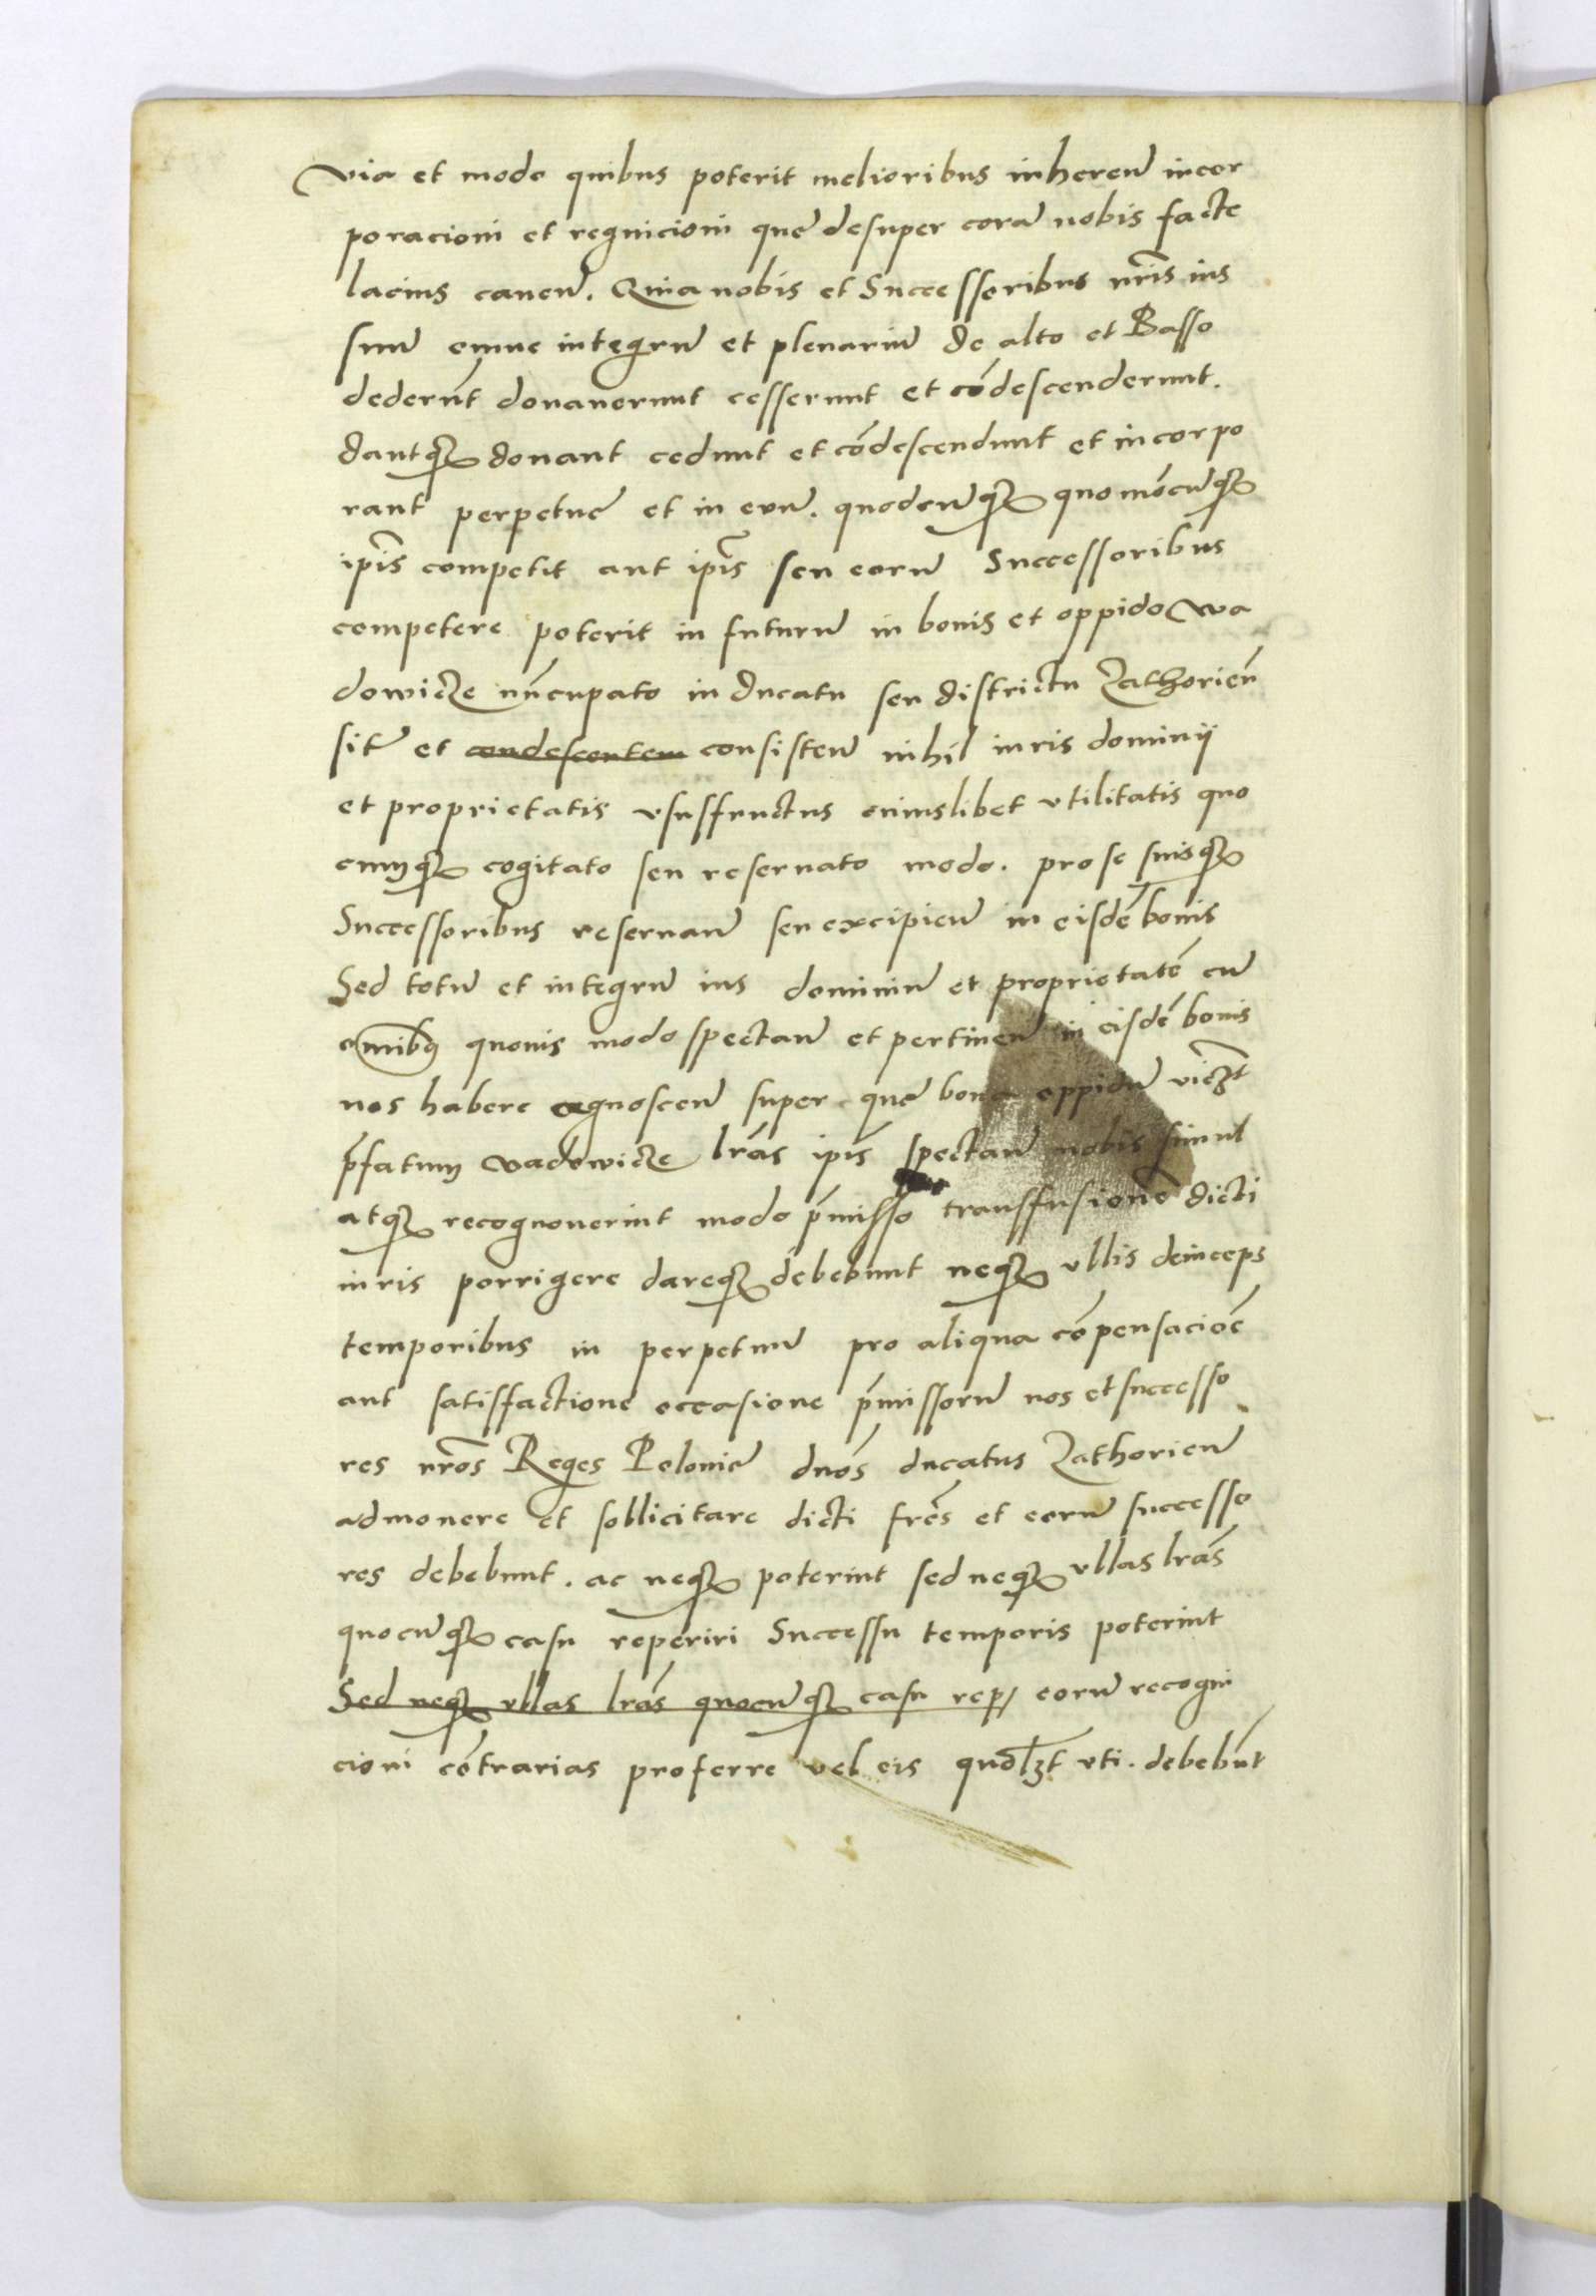 via et modo quibus poterit melioribus inheren̄ incor
poracioni et regnicioni que desuper corā nobis facte
lacius canen̄. Quia nobis et Successoribus nr̄is ius
suū omne integrū et plenariū de alto et Basso
dederūt donauerunt cesserunt et cōdescenderunt.
dantqꝫ donant cedunt et cōdescendunt et incorpo
rant perpetue et in euū. quodcūqꝫ quomōcūqꝫ
ip̄is competit aut ip̄is seu eorū Successoribus
competere poterit in futurū in bonis et oppido wa
dowicze nūcupato in ducatu seu districtu Zathorien̄
sit̄ et condescentem consisten̄ nihil iuris dominij
et proprietatis vsusfructus cuiuslibet vtilitatis quo
cumqꝫ cogitato seu reseruato modo. pro se suisqꝫ
Successoribus reseruan̄ seu excipien̄ in eisdē bonis
Sed totū et integrū ius dominiū et proprietatē cū
om̄ibꝰ quouis modo spectan̄ et pertinen̄ in eisdē bonis
nos habere agnoscen̄ super que bona oppidū vicꝫt
p̄fatum wadowicze lr̄as ip̄is spectan̄ nobis simul
atqꝫ recognouerint modo p̄misso transfusione dicti
iuris porrigere dareqꝫ debebunt neqꝫ vllis deinceps
temporibus in perpetuū pro aliqua cōpensaciōe
aut satisfactione occasione p̄missorū nos et successo
res nr̄os Reges Polonie dn̄os ducatus Zathorien̄
admonere et sollicitare dicti fr̄es et eorū successo
res debebunt. ac neqꝫ poterint sed neqꝫ vllas lr̄as
quocūqꝫ casu reperiri Successu temporis poterint
Sed neqꝫ vllas lr̄as quocūqꝫ casu rep eorū recogni
cioni cōtrarias proferre vel eis quōlꝫt vti. debebūt